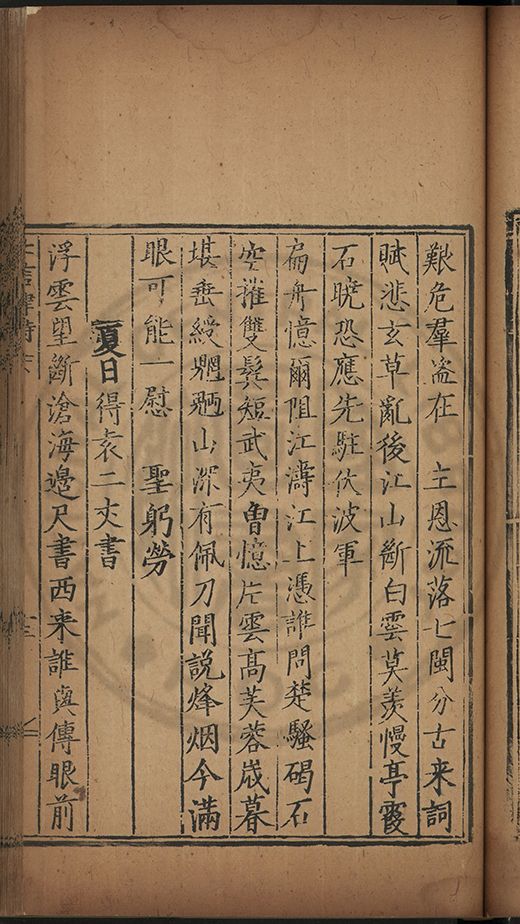 艱危羣盗在　主恩流落七閩分古来詞
賦悲玄草亂後江山斷白雲莫羨慢亭霞
石曉恐應先駐伏波軍
扁舟憶爾阻江濤江上憑誰問楚騷碣石
空摧雙鬂短武夷曾憶片雲髙芙蓉歳暮
堪垂綬魍魎山深有佩刀聞説烽烟今滿
眼可能一慰　聖躬勞
夏日得袁二丈書
浮雲望斷滄海邊尺書西来誰與傳眼前
言律詩